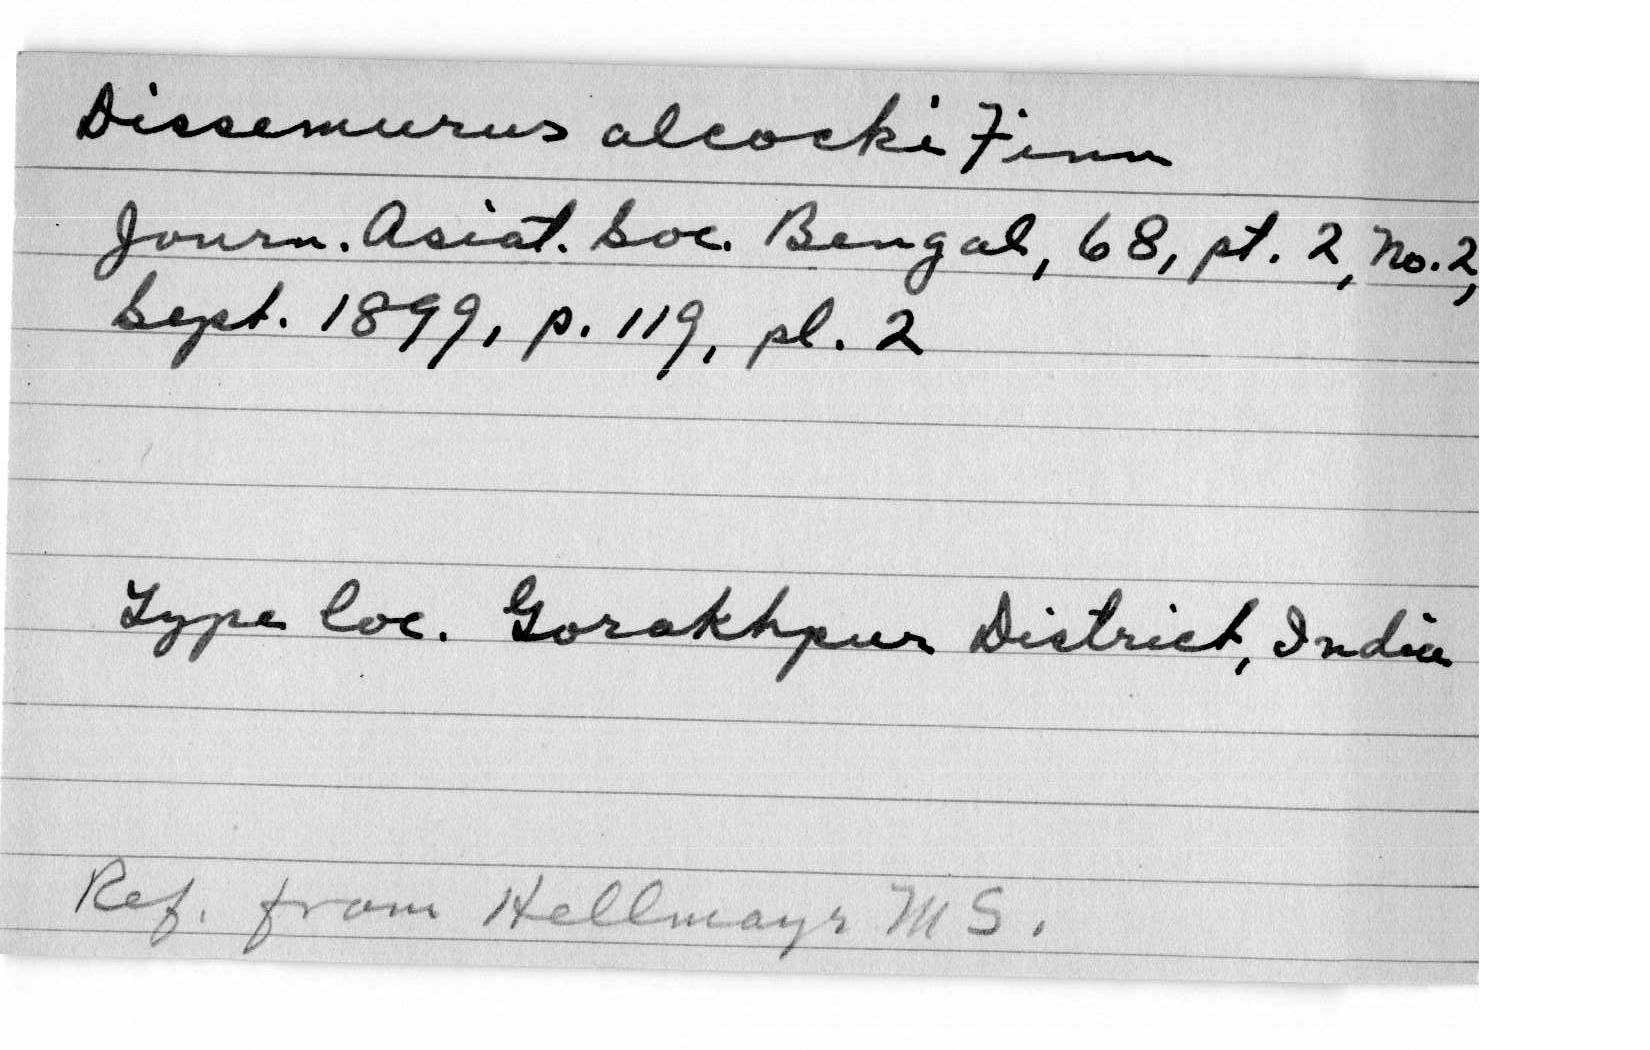 Dissemurus alcocki Finn
Journ. Asiat. Soc. Bengal, 68, pt. 2, No. 2,
Sept. 1899, p. 119, pl. 2
Type loc. Gorakhpur District, India
Ref. from Hellmayr MS.